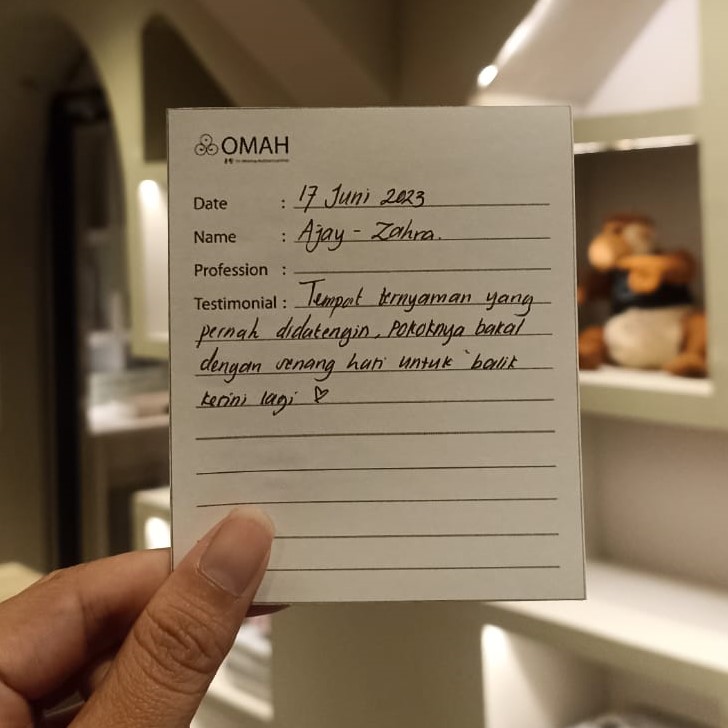 OMAH
Date : 17 Juni 2023
Name : Ajay - Zahra.
Profession :
Testimonial : Tempat ternyaman yang
pernah didatengin, pokoknya bakal
dengan senang hati untuk balik
kesini lagi ♡